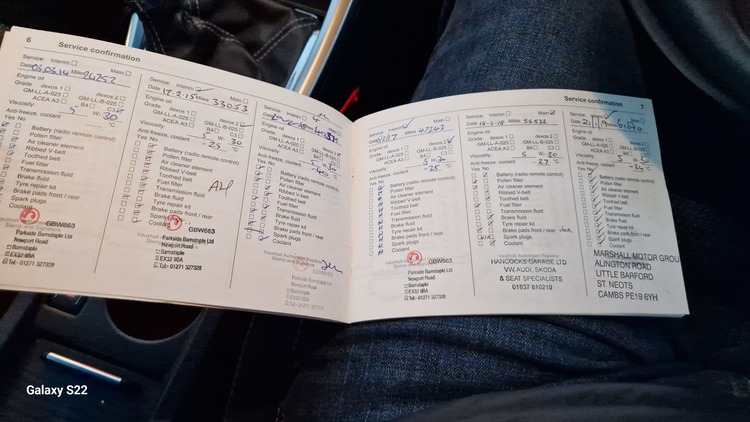 6 Service confirmation
Service: Interim Main
Date 03.03.14 Miles 24252
Engine oil
Grade: dexos 1 dexos 2
GM-LL-A-025 GM-LL-B-025
ACEA A3 B4 C3
Viscosity: 5 W- 30
Anti-freeze, coolant °C
Yes No
Battery (radio remote control)
Pollen filter
Air cleaner element
Ribbed V-belt
Toothed belt
Fuel filter
Transmission fluid
Brake fluid
Tyre repair kit
Brake pads front / rear
Spark plugs
Coolant
GBW663
Parkside Barnstaple Ltd
Newport Road
Barnstaple
EX32 9BA
Tel:- 01271 327328
Service: Interim Main
Date 17.2.15 Miles 33053
Engine oil
Grade: dexos 1 dexos 2
GM-LL-A-025 GM-LL-B-025
ACEA A3 B4 C3
Viscosity: 5 W- 30
Anti-freeze, coolant -25 °C
Yes No
Battery (radio remote control)
Pollen filter
Air cleaner element
Ribbed V-belt
Toothed belt
Fuel filter
Transmission fluid
Brake fluid
Tyre repair kit
Brake pads front / rear
Spark plugs
Coolant
GBW663
Parkside Barnstaple Ltd
Newport Road
Barnstaple
EX32 9BA
Tel:- 01271 327328
Service: Interim Main
Date Miles
Engine oil
Grade: dexos 1 dexos 2
GM-LL-A-025 GM-LL-B-025
ACEA A3 B4 C3
Viscosity: 5 30
Anti-freeze, coolant °C
Yes No
Battery (radio remote control)
Pollen filter
Air cleaner element
Ribbed V-belt
Toothed belt
Fuel filter
Transmission fluid
Brake fluid
Tyre repair kit
Brake pads front / rear
Spark plugs
Coolant
Vauxhall Authorised Repairer
GBW663
Parkside Barnstaple Ltd
Newport Road
Barnstaple
EX32 9BA
Tel:- 01271 327328
Service confirmation 7
Service: Interim Main
Date Miles 47243
Engine oil
Grade: dexos 1 dexos 2
GM-LL-A-025 GM-LL-B-025
ACEA A3 B4 C3
Viscosity: 5 W- 30
Anti-freeze, coolant -25 °C
Yes No
Battery (radio remote control)
Pollen filter
Air cleaner element
Ribbed V-belt
Toothed belt
Fuel filter
Transmission fluid
Brake fluid
Tyre repair kit
Brake pads front / rear
Spark plugs
Coolant
Vauxhall Authorised Repairer
GBW663
Parkside Barnstaple Ltd
Newport Road
Barnstaple
EX32 9BA
Tel:- 01271 327328
Service: Interim Main
Miles 56532
Engine oil
Grade: dexos 1 dexos 2
GM-LL-A-025 GM-LL-B-025
ACEA A3 B4 C3
Viscosity: 5 30
Anti-freeze, coolant -27 °C
Yes No
Battery (radio remote control)
Pollen filter
Air cleaner element
Ribbed V-belt
Toothed belt
Fuel filter
Transmission fluid
Brake fluid
Tyre repair kit
Brake pads front / rear
Spark plugs
Coolant
HANCOCKS GARAGE LTD
VW, AUDI, SKODA
& SEAT SPECIALISTS
01837 810210
Service: Interim Main
Date Miles
Engine oil
Grade: dexos 1 dexos 2
GM-LL-A-025 GM-LL-B-025
ACEA A3 B4 C3
Viscosity: 5 30
Anti-freeze, coolant °C
Yes No
Battery (radio remote control)
Pollen filter
Air cleaner element
Ribbed V-belt
Toothed belt
Fuel filter
Transmission fluid
Brake fluid
Tyre repair kit
Brake pads front / rear
Spark plugs
Coolant
MARSHALL MOTOR GROU
ALINGTON ROAD
LITTLE BARFORD
ST. NEOTS
CAMBS PE19 6YH
Galaxy S22